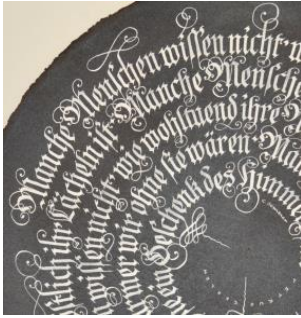 Manche Menschen wissen nicht w
stlich ihr Lächeln ist · Manche Mensche
wissen nicht · wie wohltuend ihre
mer wir ohne sie wären · Ma
ein Geschenk des Himme